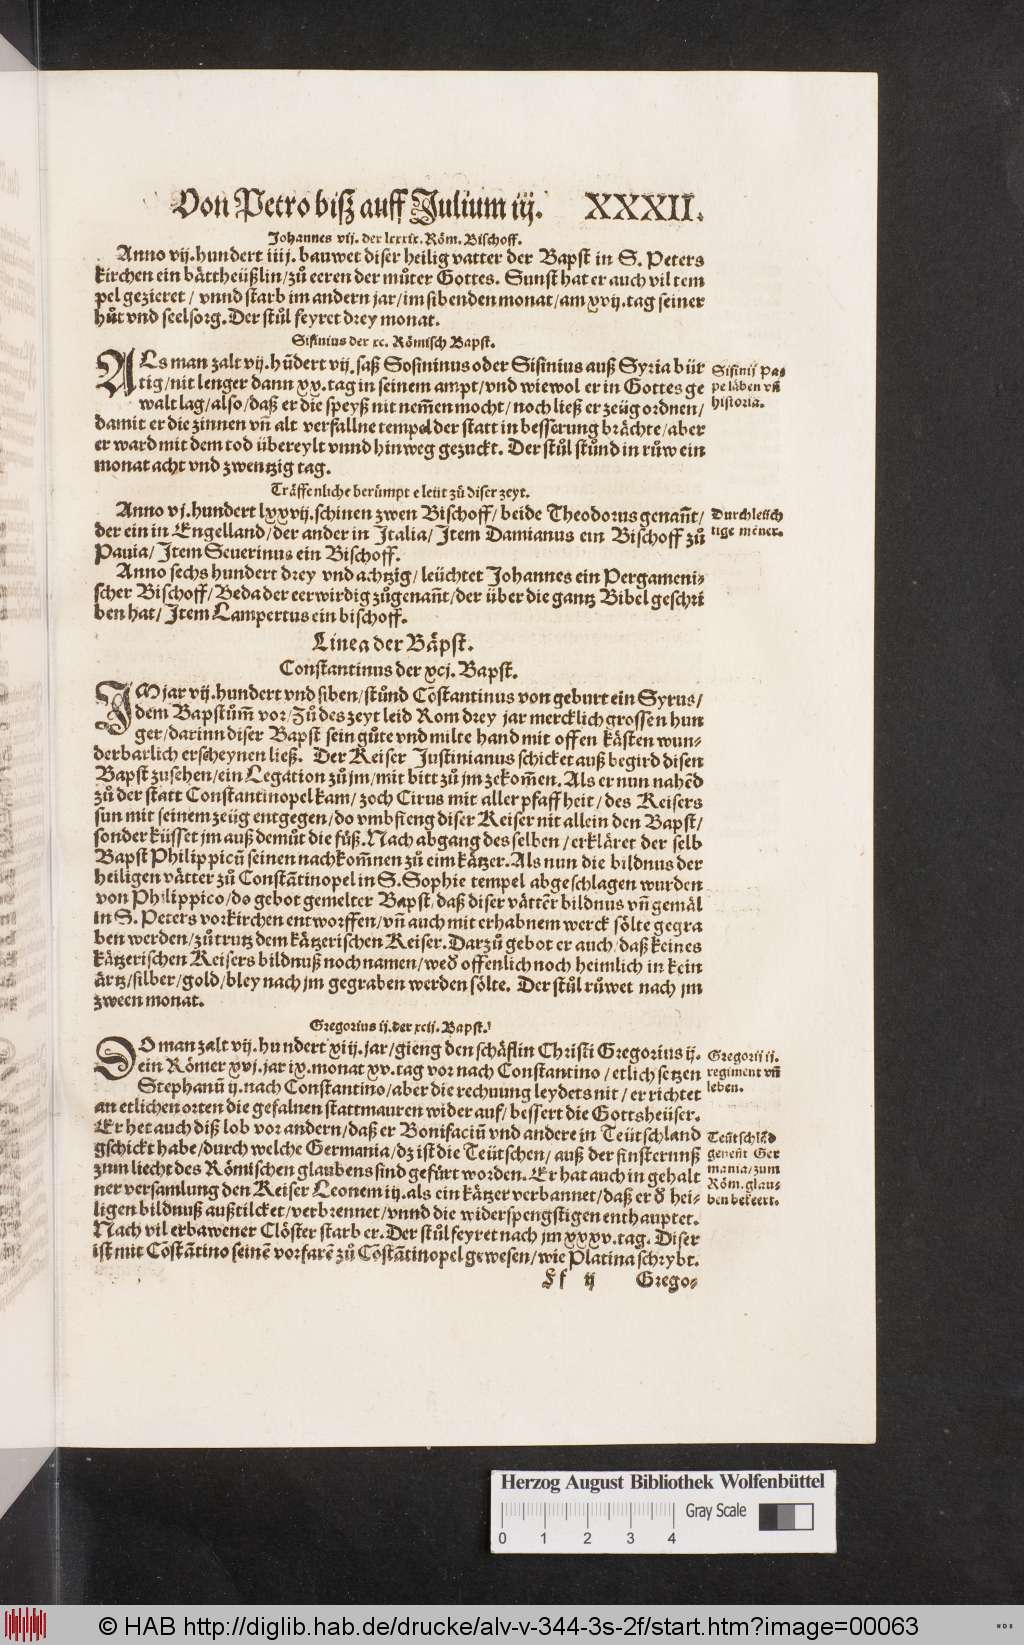 Von Petro biß auff Julium iij. XXXII.
Johannes vij. der lxxxix. Röm. Bischoff.
Anno vij. hundert iiij. bauwet diser heilig vatter der Bapst in S. Peters
kirchen ein bättheüßlin/zů eeren der můter Gottes. Sunst hat er auch vil tem
pel gezieret/ vnnd starb im andern jar/im sibenden monat/am xvij. tag seiner
hůt vnd seelsorg. Der stůl feyret drey monat.
Sisinius der xc. Römisch Bapst.
ALs man zalt vij. hũdert vij. saß Sosininus oder Sisinius auß Syria bür
tig/nit lenger dann xx. tag in seinem ampt/vnd wiewol er in Gottes ge
walt lag/also/daß er die speyß nit nem̃en mocht/noch ließ er zeüg ordnen/
damit er die zinnen vñ alt verfallne tempel der statt in besserung brächte/aber
er ward mit dem tod übereylt vnnd hinweg gezuckt. Der stůl stůnd in růw ein
monat acht vnd zwentzig tag.
Sisinij Pa-
pe läben vñ
historia.
Träffenliche berümpte leüt zů diser zeyt.
Anno vj. hundert lxxvij. schinen zwen Bischoff/ beide Theodorus genañt/
der ein in Engelland/der ander in Italia/ Item Damianus ein Bischoff zů
Pauia/ Item Seuerinus ein Bischoff.
Durchleüch
tige mẽner.
Anno sechs hundert drey vnd achtzig/ leüchtet Johannes ein Pergameni-
scher Bischoff/ Beda der eerwirdig zůgenañt/der über die gantz Bibel geschri
ben hat/ Item Lampertus ein bischoff.
Linea der Bäpst.
Constantinus der xcj. Bapst.
IM jar vij. hundert vnd siben/stůnd Cõstantinus von geburt ein Syrus/
dem Bapstům̃ vor/Zů des zeyt leid Rom drey jar mercklich grossen hun
ger/darinn diser Bapst sein gůte vnd milte hand mit offen kästen wun-
derbarlich erscheynen ließ. Der Keiser Justinianus schicket auß begird disen
Bapst zusehen/ein Legation zů jm/mit bitt zů jm zekom̃en. Als er nun nahẽd
zů der statt Constantinopel kam/ zoch Cirus mit aller pfaffheit/ des Keisers
sun mit seinem zeüg entgegen/do vmbfieng diser Keiser nit allein den Bapst/
sonder küsset jm auß demůt die füß. Nach abgang desselben/ erkläret der selb
Bapst Philippicũ seinen nachkom̃nen zů eim kätzer. Als nun die bildnus der
heiligen vätter zů Constãtinopel in S. Sophie tempel abgeschlagen wurden
von Philippico/do gebot gemelter Bapst/daß diser vätter bildnus vñ gemäl
in S. Peters vorkirchen entworffen/vñ auch mit erhabnem werck sölte gegra
ben werden/zů trutz dem kätzerischen Keiser. Darzů gebot er auch/daß keines
kätzerischen Keisers bildnuß noch namen/wed̃ offenlich noch heimlich in kein
ärtz/silber/gold/bley nach jm gegraben werden sölte. Der stůl růwet nach jm
zween monat.
Gregorius ij. der xcij. Bapst.
DO man zalt vij. hundert xiij. jar/gieng den schäflin Christi Gregorius ij.
ein Römer xvj. jar ix. monat xv. tag vor nach Constantino/etlich setzen
Stephanũ ij. nach Constantino/aber die rechnung leydets nit/ er richtet
an etlichen orten die gefalnen stattmauren wider auf/ bessert die Gottsheüser.
Er het auch diß lob vor andern/daß er Bonifaciũ vnd andere in Teütschland
gschickt habe/durch welche Germania/dz ist die Teütschen/ auß der finsternuß
zum liecht des Römischen glaubens sind gefürt worden. Er hat auch in gehalt
ner versamlung den Keiser Leonem iij. als ein kätzer verbannet/daß er d̃ hei-
ligen bildnuß außtilcket/verbrennet/vnnd die widerspengstigen enthauptet.
Nach vil erbawener Clöster starb er. Der stůl feyret nach jm xxxv. tag. Diser
ist mit Cõstãtino seinẽ vorfarẽ zů Cõstãtinopel gewesen/wie Platina schrybt.
Gregorij ij.
regiment vñ
leben.
Teütschlãd
genent Ger
mania/zum
Röm. glau-
ben bekeert.
Ff ij Grego-
Herzog August Bibliothek Wolfenbüttel
0 1 2 3 4
Gray Scale
© HAB http://diglib.hab.de/drucke/alv-v-344-3s-2f/start.htm?image=00063